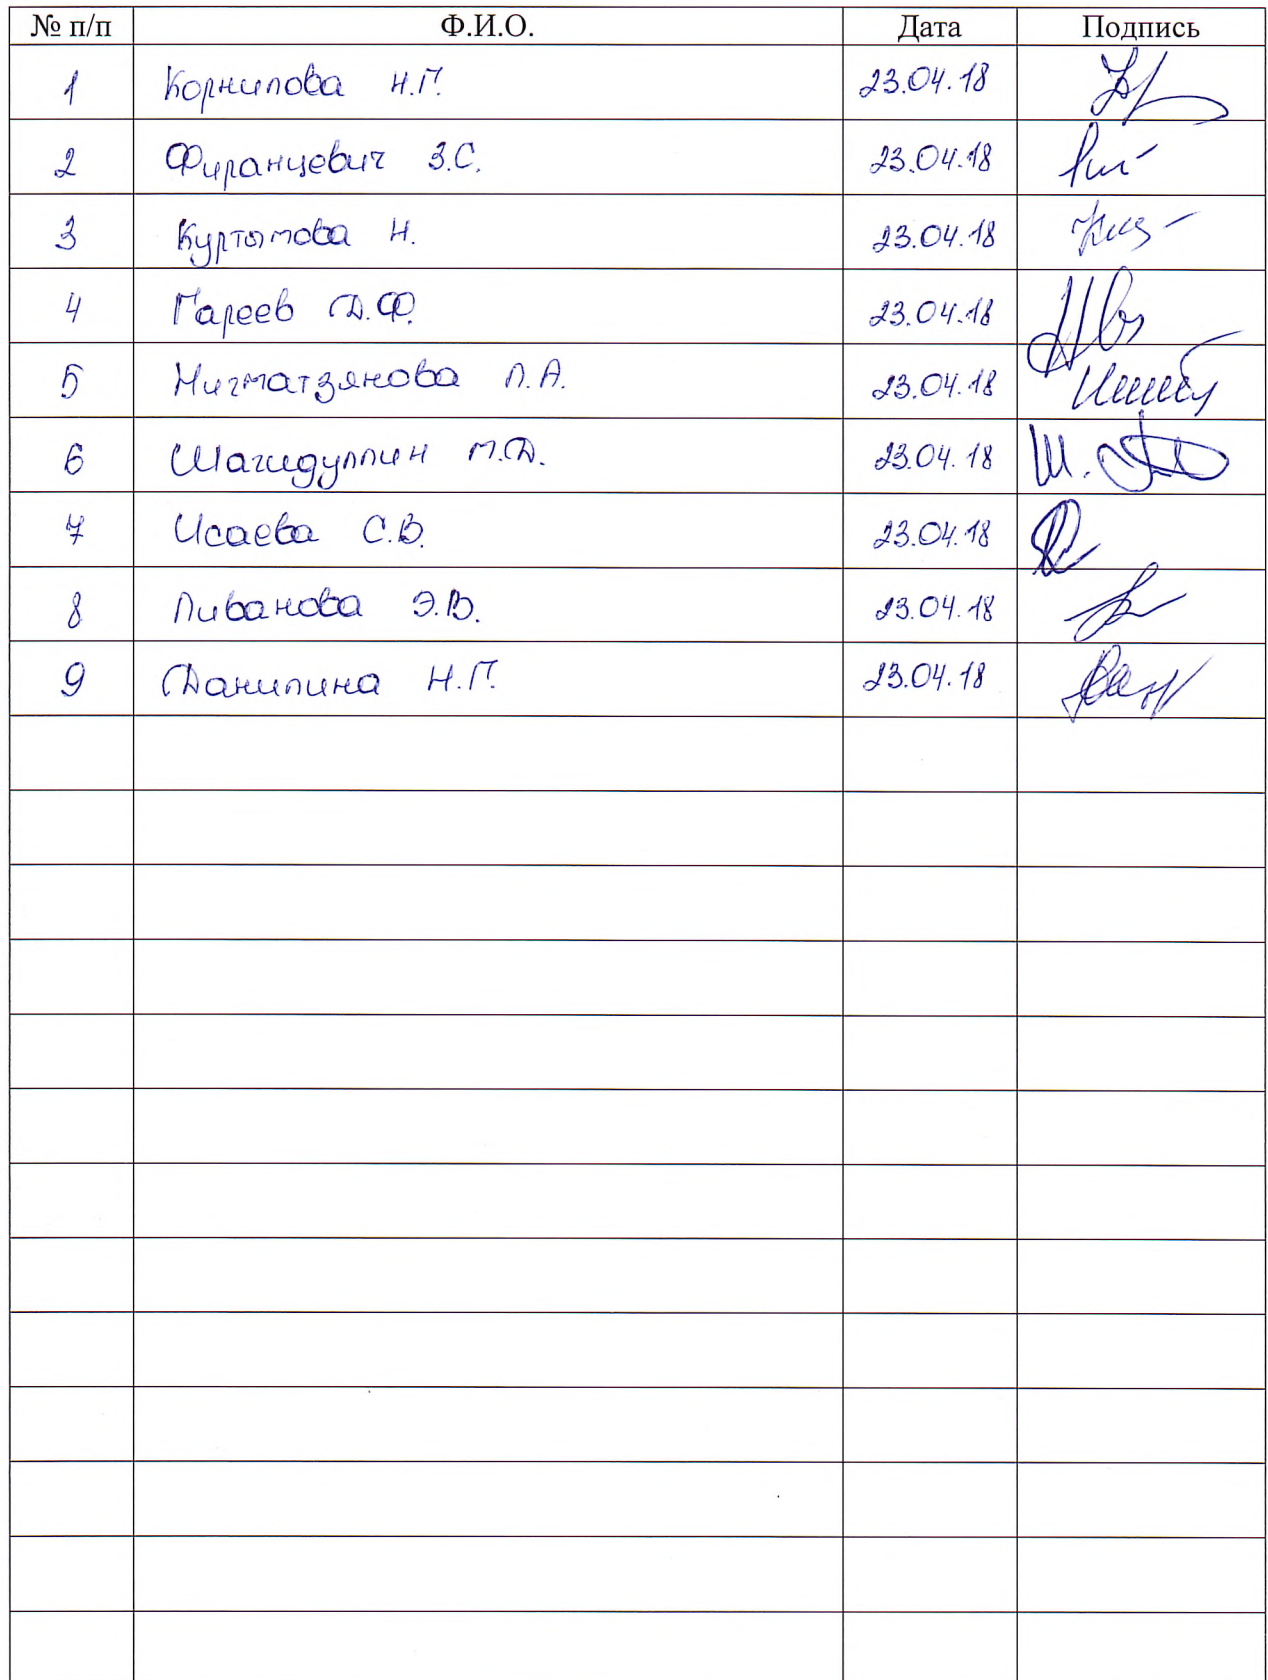 № п/п Ф.И.О. Дата Подпись
1 Корнилова Н.П. 23.04.18
2 Фиранцевич З.С. 23.04.18
3 Куртымова Н. 23.04.18
4 Гареев Д.Ф. 23.04.18
5 Нигматзянова Л.А. 23.04.18
6 Шагидуллин М.Д. 23.04.18
7 Исаева С.В. 23.04.18
8 Ливанова Э.В. 23.04.18
9 Данилина Н.П. 23.04.18